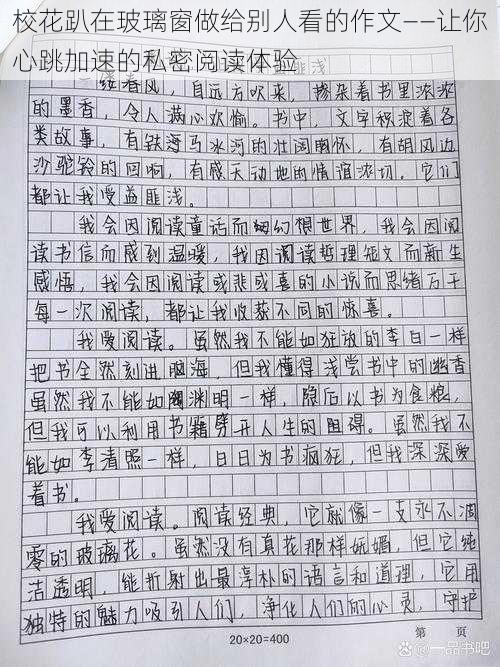 校花趴在玻璃窗做给别人看的作文——让你
心跳加速的私密阅读体验
一缕春风，自远方吹来，掺杂着书里浓浓
的墨香，令人满心欢愉。书中，文字积淀着各
类故事，有铁马冰河的壮阔胸怀，有胡风边
沙驼铃的回响，有感天动地的情谊浓切。它们
都让我受益匪浅。
我会因阅读童话而幻想世界，我会因阅
读书信而感到温暖，我因阅读哲理短文而新生
感悟，我会因阅读或悲或喜的小说而思绪万千
每一次阅读，都让我收获不同的惊喜。
我爱阅读。虽然我不能如狂放的李白一样
把书全然刻进脑海，但我懂得浅尝书中的幽香
虽然我不能如陶渊明一样，隐后以书为食粮，
但我可以利用书籍劈开人生的阻碍。虽然我不
能如李清照一样，日日为书疯狂，但我深深爱
着书。
我爱阅读。阅读经典，它就像一支永不凋
零的玻璃花。虽然没有真花那样妩媚，但它纯
洁透明，能折射出最淳朴的语言和道理，它用
独特的魅力吸引人们，净化人们的心灵，守护
20×20=400
第 页
一品书吧